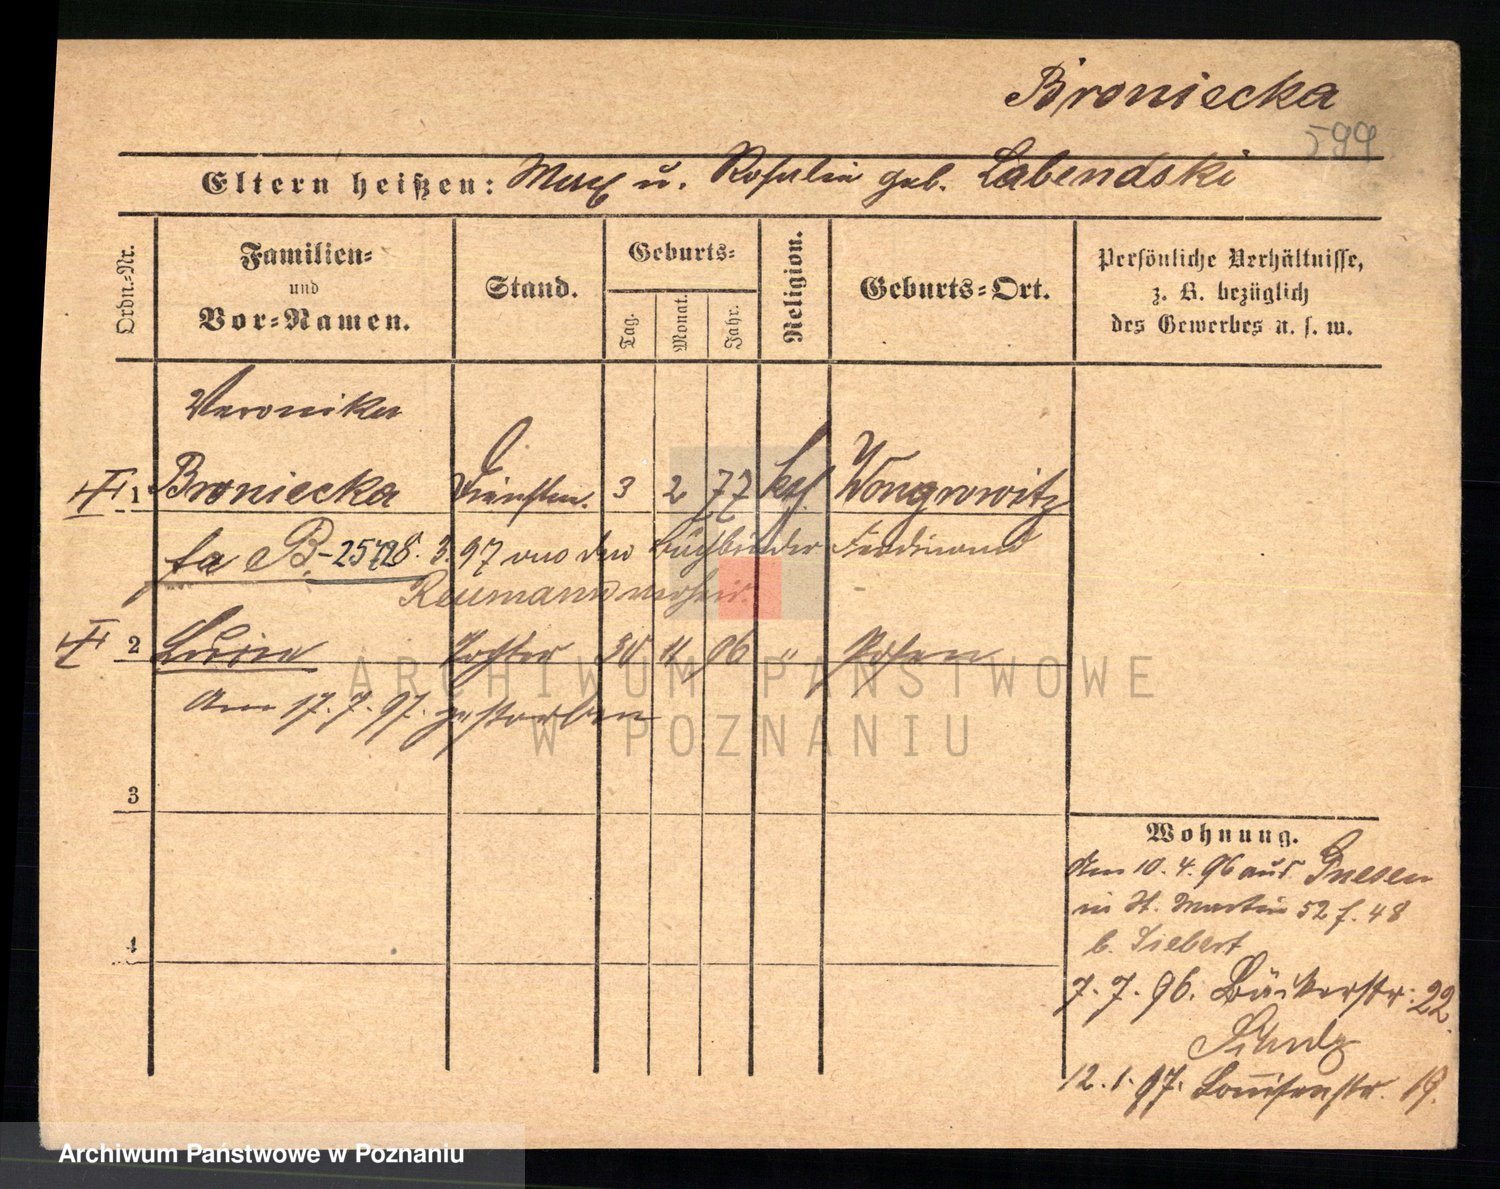 Broniecka
599
Eltern heißen: Max u. Rosalie geb. Labendski
Ordn.-Nr.
Familien-
und
Vor-Namen.
Stand.
Geburts-
Tag.
Monat.
Jahr.
Religion.
Geburts-Ort.
Persönliche Verhältnisse,
z. B. bezüglich
des Gewerbes u. s. w.
Veronika
1 Broniecka Dienstm. 3 2 77 kath. Wongrowitz
B. 3.97 den Buchbinder Ferdinand
Reumann verheir.
2 Lucie Tochter 30 11 96 " Posen
Am 17. 7. 97. gestorben
3
4
Wohnung.
Am 10. 4. 96 aus Gnesen
in St. Martin 52 f. 48
b. Siebert
7. 7. 96. Bäckerstr. 22
12. 1. 97. Louisenstr. 19.
ARCHIWUM PAŃSTWOWE
W POZNANIU
Archiwum Państwowe w Poznaniu